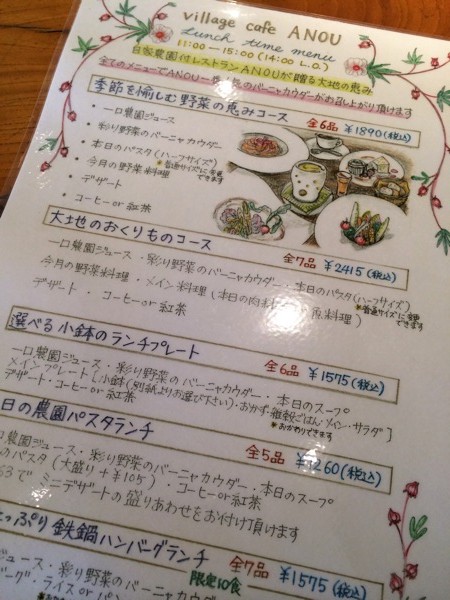 village cafe ANOU
Lunch time menu
11:00 — 15:00 (14:00 L.O.)
自家農園付レストランANOUが贈る大地の恵み
全てのメニューでANOU一番人気のバーニャカウダーがお召し上がり頂けます
季節を愉しむ野菜の恵みコース
全6品 ¥1890(税込)
・一口農園ジュース
・彩り野菜のバーニャカウダー
・本日のパスタ(ハーフサイズ)
※普通サイズに変更できます
・今月の野菜料理
・デザート
・コーヒーor紅茶
大地のおくりものコース
全7品 ¥2415(税込)
一口農園ジュース・彩り野菜のバーニャカウダー・本日のパスタ(ハーフサイズ)
※普通サイズに変更できます
今月の野菜料理・メイン料理(本日の肉料理 魚料理)
デザート・コーヒーor紅茶
選べる小鉢のランチプレート
全6品 ¥1575(税込)
一口農園ジュース・彩り野菜のバーニャカウダー・本日のスープ
メインプレート[小鉢(別紙よりお選び下さい)・おかず・雑穀ごはん・メイン・サラダ]
※おかわりできます
デザート・コーヒーor紅茶
日の農園パスタランチ
全5品 ¥1260(税込)
農園ジュース・彩り野菜のバーニャカウダー・本日のスープ
のパスタ(大盛り+¥105)・コーヒーor紅茶
63で ミニデザートの盛りあわせをお付け頂けます
っぷり鉄鍋ハンバーグランチ
限定10食
全7品 ¥1575(税込)
ジュース・彩り野菜のバーニャカウダー・本日のスープ
バーグ・ライスorパン